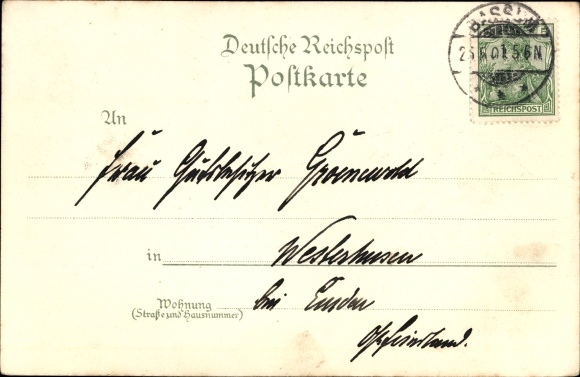 BASSUM
25.6.01.5-6N.
REICHSPOST
Deutsche Reichspost
Postkarte
An
Frau Gutsbesitzer Groenewold
in Westerhusen
Wohnung
(Straße und Hausnummer)
bei Emden
Ostfriesland.